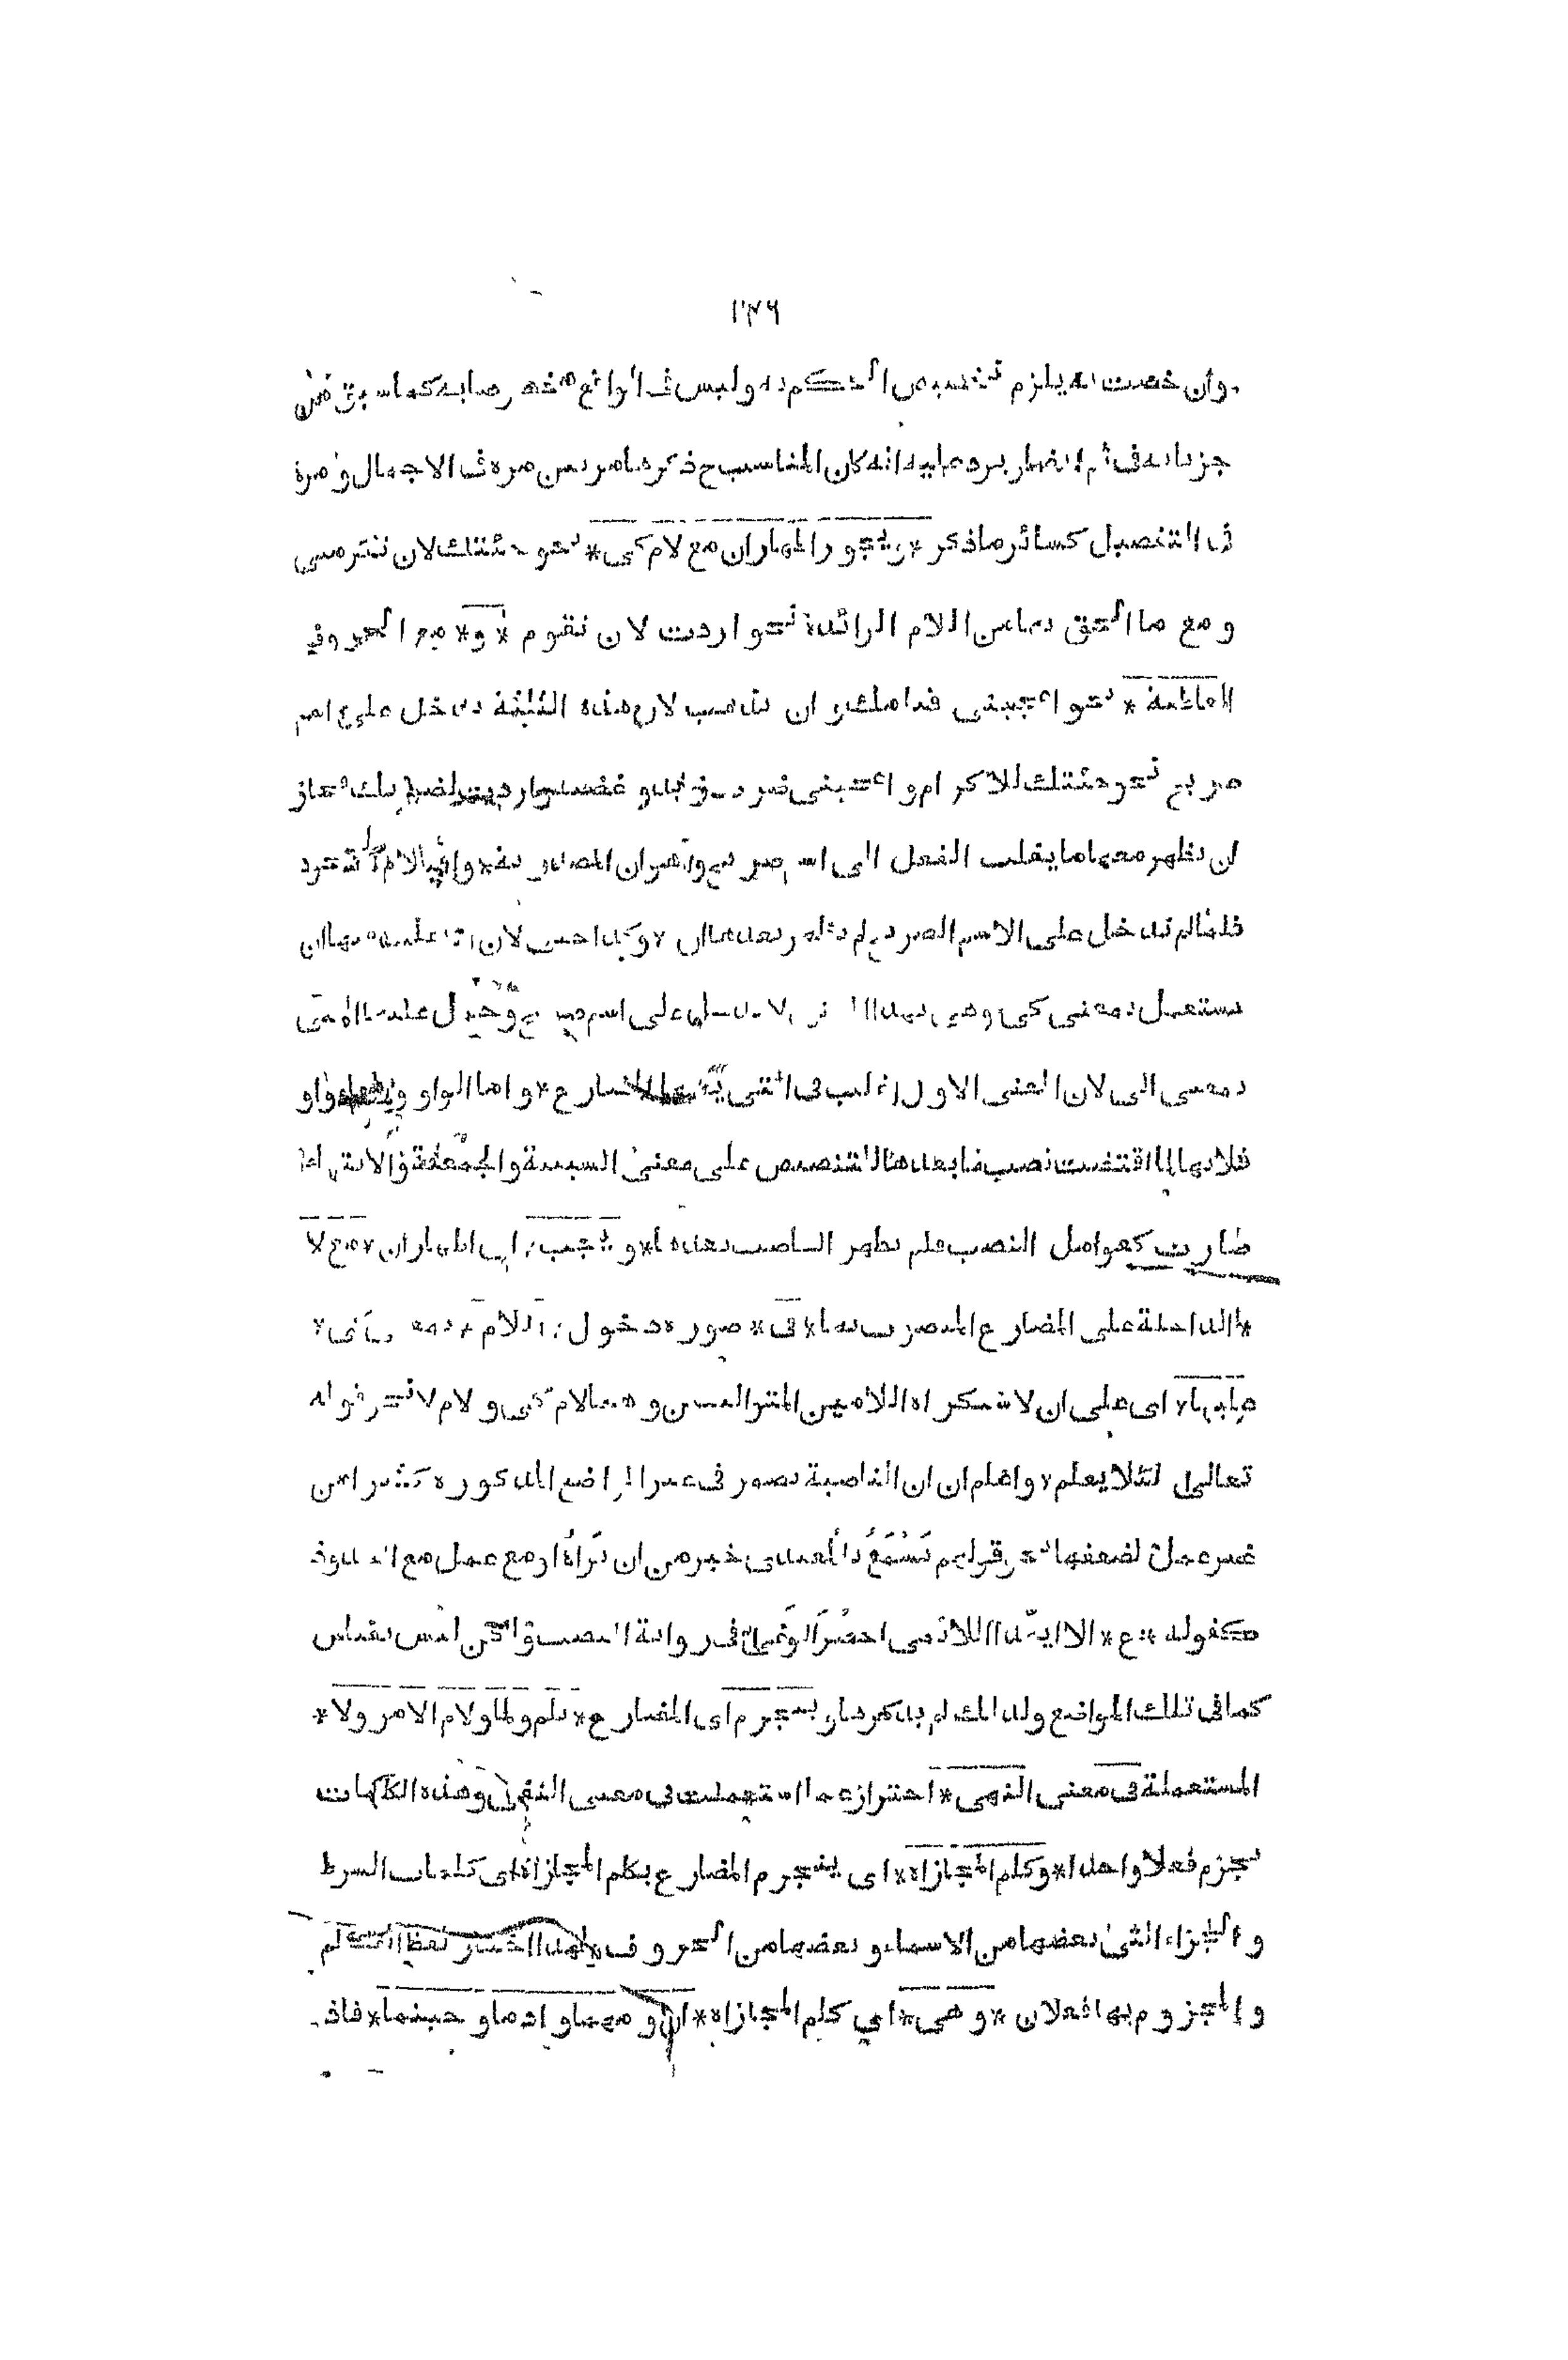 ١٣٦
وان خصت به يلزم تخصيص الحكم به وليس في الواقع مخصوصا به كما سبق من
جريانه في لم اضرب يرد عليه انه كان المناسب ح ذكرها مرتين مرة في الاجمال ومرة
في التفصيل كسائر ما ذكر * ويجوز اظهار ان مع لام كي * نحو جئتك لان تكرمني
و مع ما الحق بها من اللام الزائدة نحو اردت لان تقوم * و * مع الحروف
العاطفة * نحو اعجبني قيامك و ان تذهب لان هذه الثلثة تدخل على اسم
صريح نحو جئتك للاكرام و اعجبني ضرب زيد و غضبه و اردت لضربك فجاز
ان يظهر معها ما يقلب الفعل الى اسم صريح وهو ان المصدرية * واما لام الجحود
فلما لم تدخل على الاسم الصريح لم يظهر بعدها ان * وكذا حتى لان الاغلب فيها ان
تستعمل بمعنى كي وهي بهذا المعنى لا تدخل على اسم صريح وحمل عليها التي
بمعنى الى لان المعنى الاول اغلب في التي يليها المضارع * واما الواو والفاء واو
فلانها لما اقتضت نصب ما بعدها للتنصيص على معنى السببية والجمعية والانتهاء
صارت كعوامل النصب فلم يظهر الناصب بعدها * و يجب * اي اظهار ان * مع لا
* الداخلة على المضارع المنصوب بها * في * صورة دخول * اللام * بمعنى كي *
عليها * اى على ان لاستكراه اللامين المتواليين وهما لام كي و لام لا نحو قوله
تعالى لئلا يعلم * واعلم ان ان الناصبة تضمر في غير المواضع المذكورة كثيرا من
غير عمل لضعفها نحو قولهم تَسْمَعُ بالمعيدي خير من ان تراه او مع عمل مع الشذوذ
كقوله * ع * الا ايّهذا اللائمي احضُرَ الوغى * في رواية النصب ولكن ليس بقياس
كما في تلك المواضع ولذلك لم يذكرها * و ينجزم اى المضارع * بلم ولما ولام الامر ولا *
المستعملة في معنى النهي * احتراز عما استعملت في معنى النفي * وهذه الكلمات
تجزم فعلا واحدا * وكلم المجازاة * اى ينجزم المضارع بكلم المجازاة اى كلمات الشرط
و الجزاء التي بعضها من الاسماء و بعضها من الحروف * ولهذا اختار لفظ الكلم
و المجزوم بها فعلان * و هى * اي كلم المجازاة * ان و مهما و اذما و حيثما * فاذ